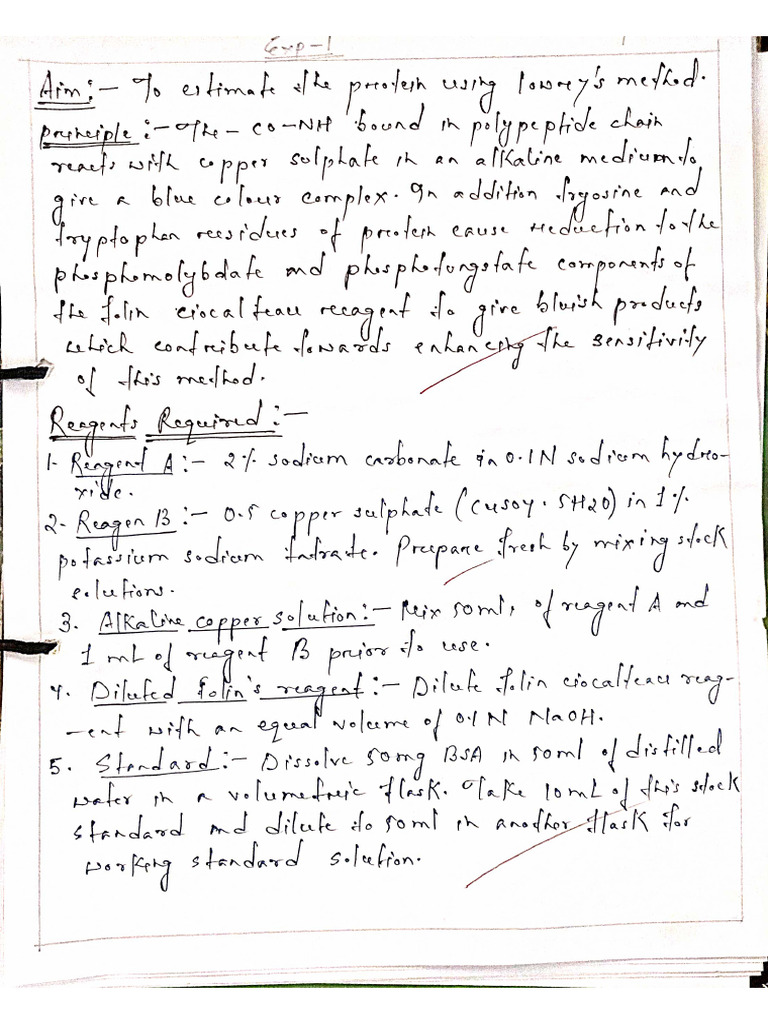 Exp-1
1
Aim:- To estimate the protein using lowrey's method.
Principle:- The - CO-NH bound in polypeptide chain
reacts with copper sulphate in an alkaline medium to
give a blue colour complex. In addition tryosine and
tryptophan reesidues of protein cause reduction to the
phosphomolybdate and phosphotungstate components of
the folin ciocalteau reagent to give bluish products
which contribute towards enhancing the sensitivity
of this method.
Reagents Required:-
1. Reagent A:- 2% sodium carbonate in 0.1N sodium hydro-
xide.
2. Reagen B:- 0.5 copper sulphate (CuSO4. 5H2O) in 1%
potassium sodium tatrate. Prepare fresh by mixing stock
solutions.
3. Alkaline copper solution:- Mix 50ml, of reagent A and
1 mL of reagent B prior to use.
4. Diluted folin's reagent:- Dilute folin ciocalteau reag-
-ent with an equal volume of 0.1 N NaOH.
5. Standard:- Dissolve 50mg BSA in 50ml of distilled
water in a volumetric flask. Take 10mL of this stock
standard and dilute to 50ml in another flask for
working standard solution.